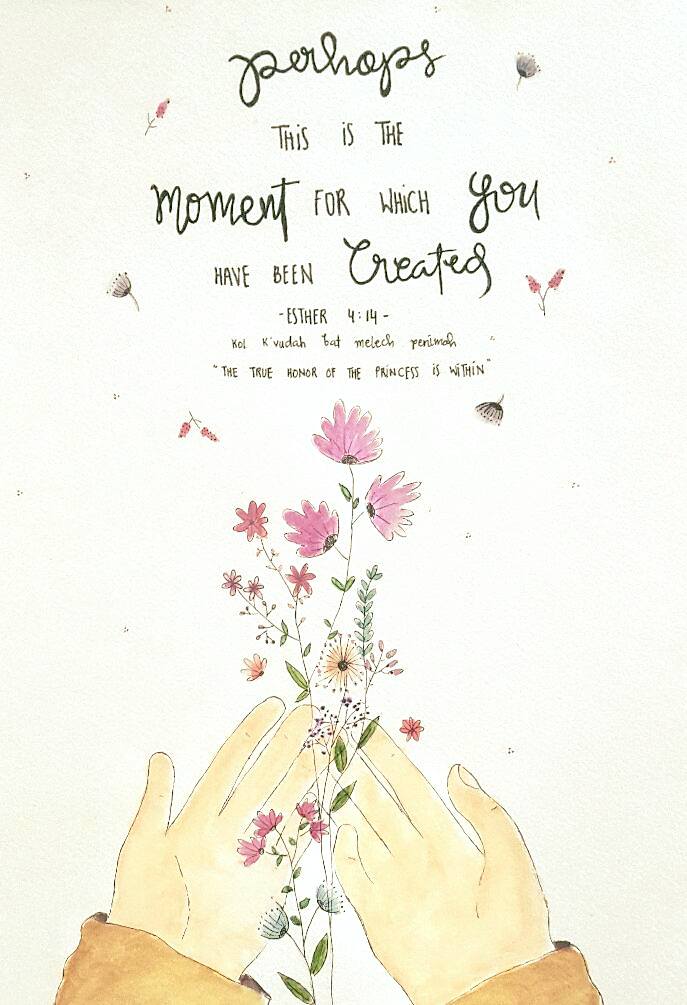 perhaps
THIS IS THE
moment FOR WHICH you
HAVE BEEN Created
-ESTHER 4:14-
Kol K'vudah bat melech penimah
"THE TRUE HONOR OF THE PRINCESS IS WITHIN"